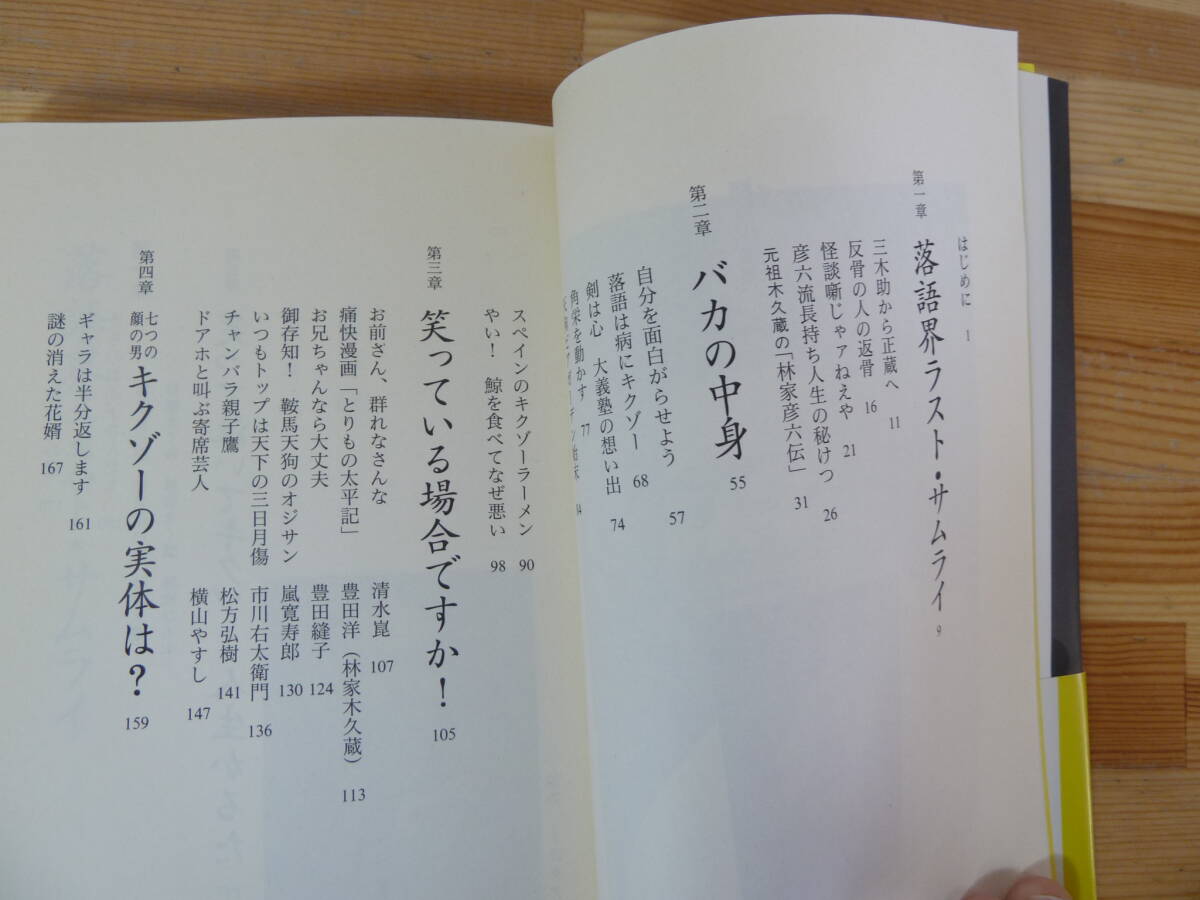 はじめに 1
第一章 落語界ラスト・サムライ 9
三木助から正蔵へ 11
反骨の人の返骨 16
怪談噺じゃァねえや 21
彦六流長持ち人生の秘けつ 26
元祖木久蔵の「林家彦六伝」 31
第二章 バカの中身 55
自分を面白がらせよう 57
落語は病にキクゾー 68
剣は心 大義塾の想い出 74
角栄を動かす 77
スペインのキクゾーラーメン 90
やい! 鯨を食べてなぜ悪い 98
第三章 笑っている場合ですか! 105
お前さん、群れなさんな 清水崑 107
痛快漫画「とりもの太平記」 豊田洋(林家木久蔵) 113
お兄ちゃんなら大丈夫 豊田縫子 124
御存知! 鞍馬天狗のオジサン 嵐寛寿郎 130
いつもトップは天下の三日月傷 市川右太衛門 136
チャンバラ親子鷹 松方弘樹 141
ドアホと叫ぶ寄席芸人 横山やすし 147
第四章 七つの顔の男 キクゾーの実体は? 159
ギャラは半分返します 161
謎の消えた花婿 167